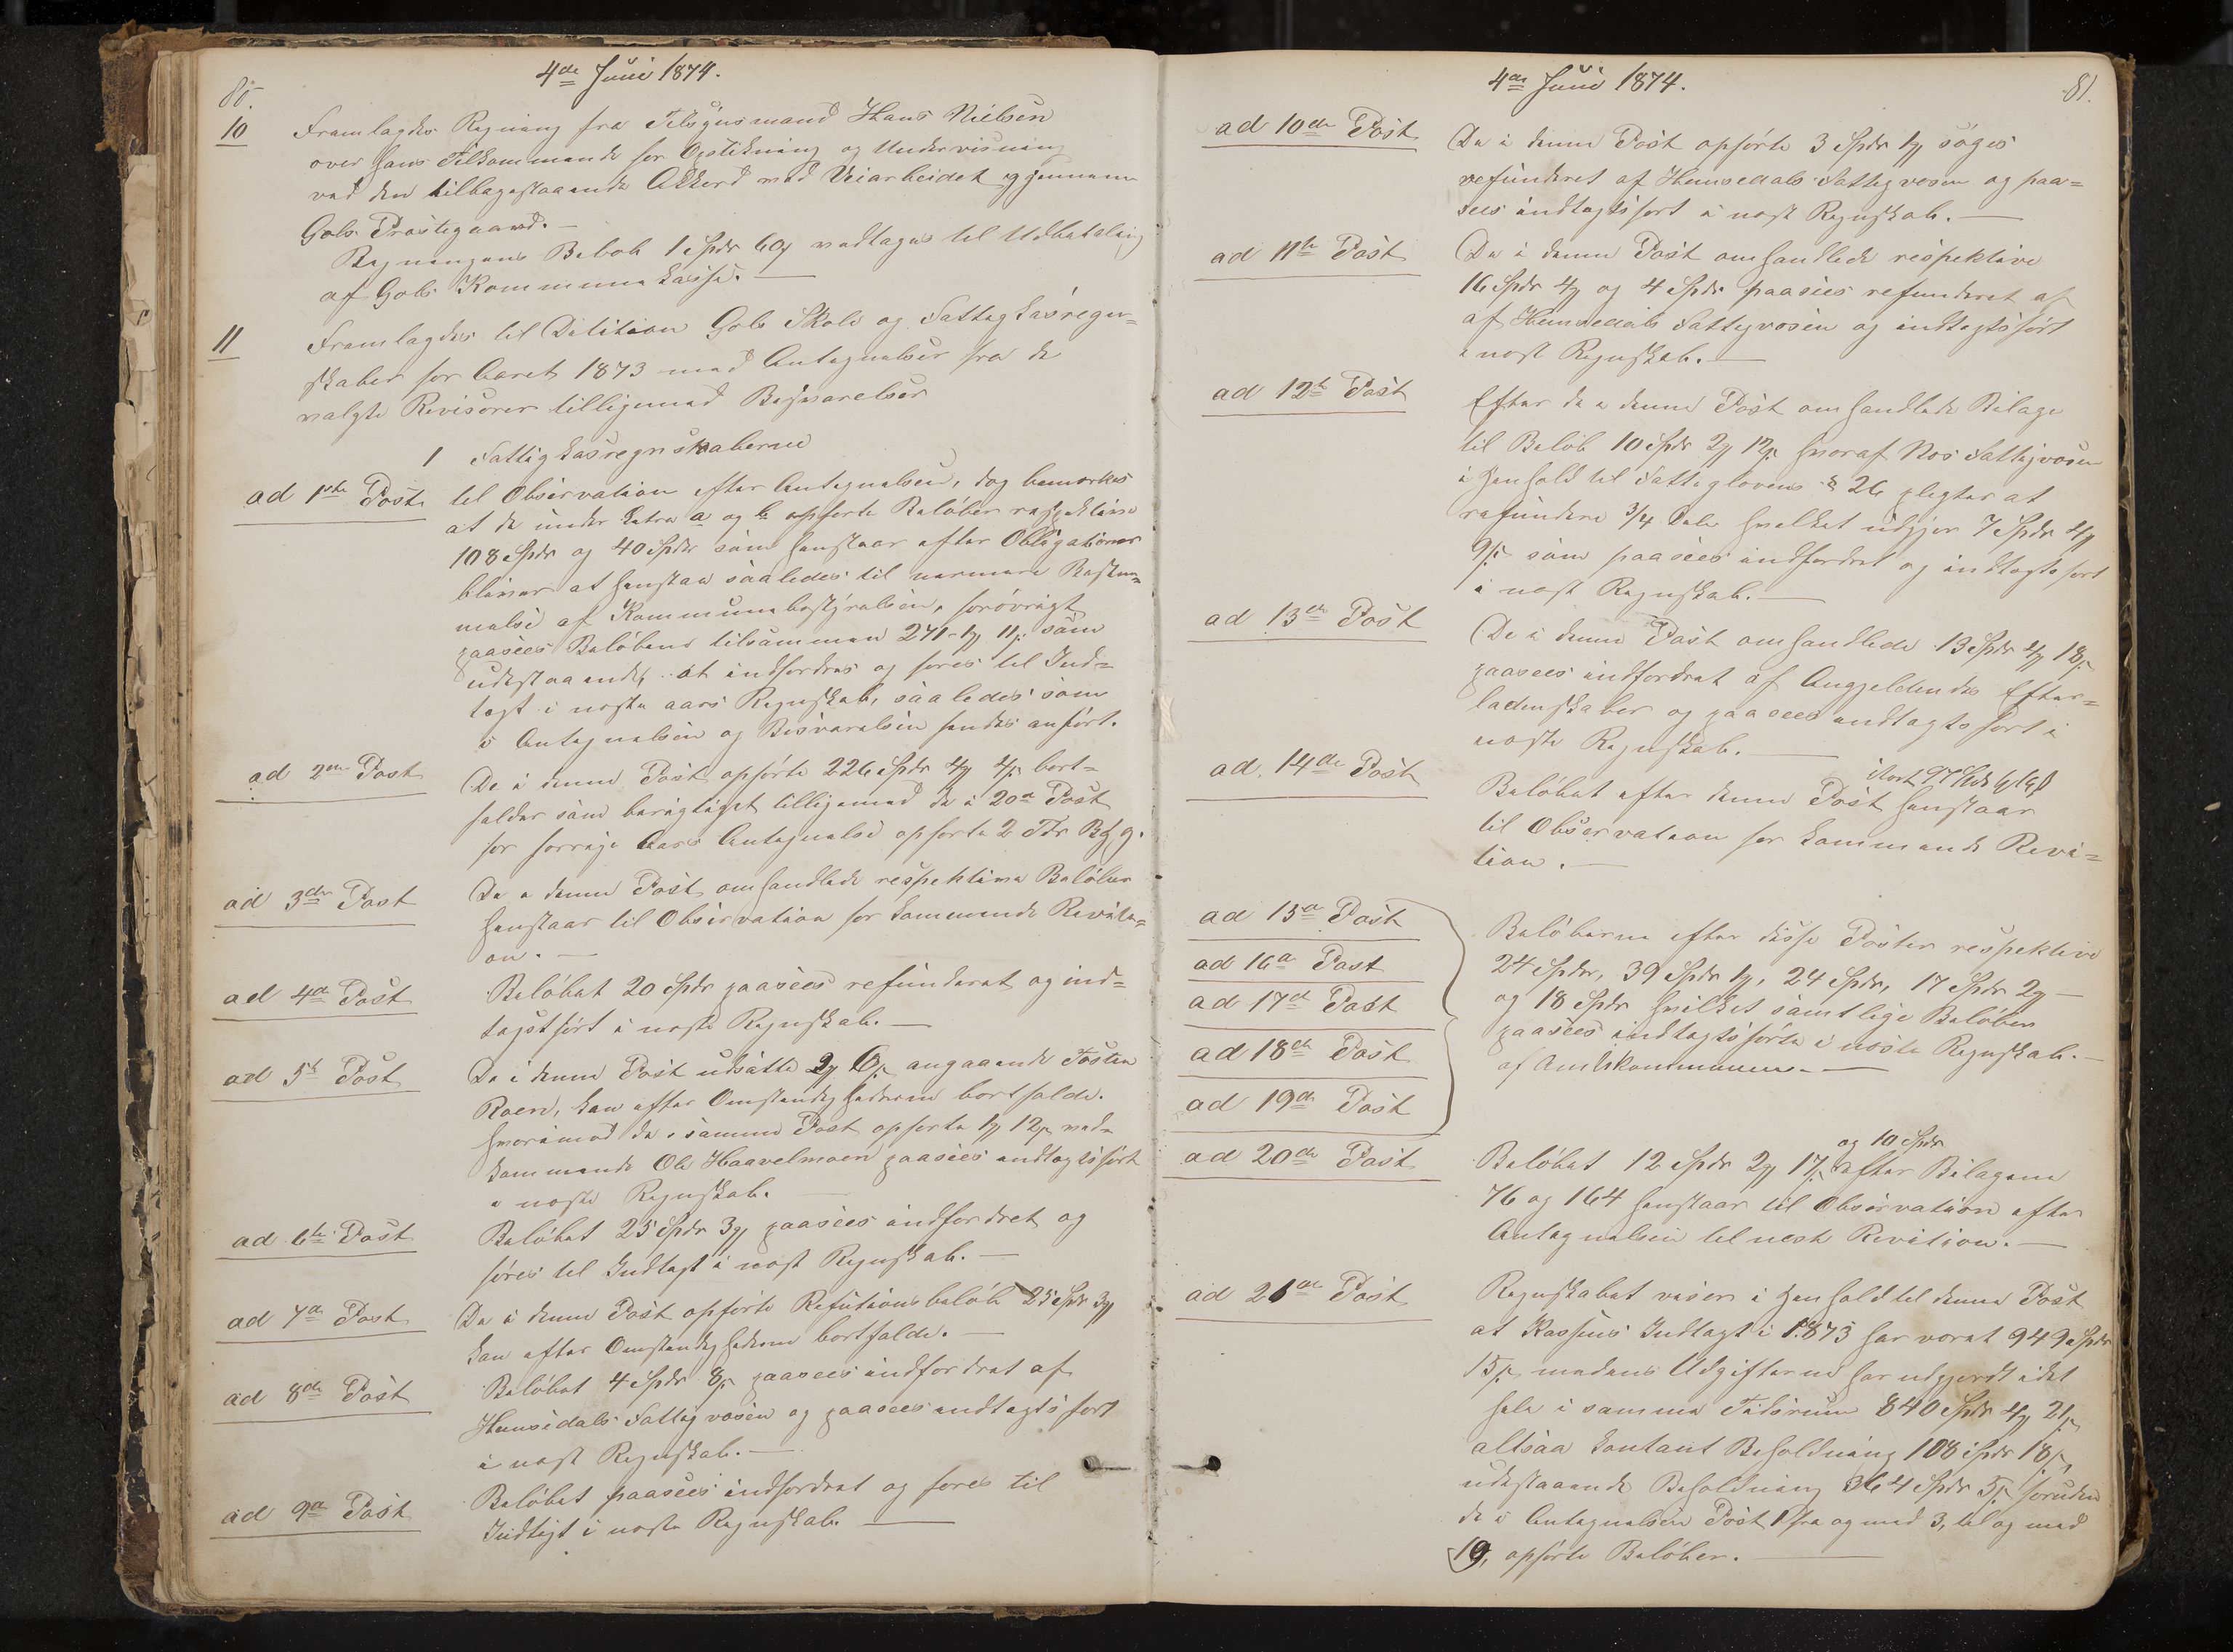 80.
4de Juni 1874.
10
Fremlagdes Regning fra Tilsynsmand Hans Nielsen
over hans Tilkommende for Opstikning og Undervisning
ved den tilbagestaaende Akkord ved Veiarbeidet gjennem
Gols Prestegaard.
Regningens Beløb 1 Spdr 60 vedtages til Udbetaling
af Gols Kommunekasse. —
11
Fremlagdes til Decition Gols Skole og Fattigkasregn=
skaber for Aaret 1873 med Antegnelser fra de
valgte Revisorer tilligemed Besvarelser
1 Fattigkasregnskaberne
ad 1ste Post
til Observation efter Antegnelsen, dog bemærkes
at de under Litra a og b opførte Beløber respektive
108 Spdr og 40 Spdr som henstaar efter Obligationer
bliver at henstaa saaledes til nærmere Bestem=
melse af Kommunebestyrelsen, forøvrigt
paasees Beløbene tilsammen 271 - 11 som
udestaaende, at indfordres og føres til Ind=
tægt i næste aars Regnskab, saaledes som
i Antegnelsen og Besvarelsen findes anført.
ad 2den Post
De i denne Post opførte 226 Spdr 4 4 bort=
falder som berigtiget tilligemed de i 20de Post
for forrige Aars Antegnelse opførte 2
ad 3die Post
De i denne Post omhandlede respektive Beløber
henstaar til Observation for kommende Revisi=
on. —
ad 4de Post
Beløbet 20 Spdr paasees refunderet og ind=
tægtsført i næste Regnskab. —
ad 5te Post
De i denne Post udsatte 2 angaaende Tosten
Roen, kan efter Omstændighederne bortfalde.
hvorimod de i samme Post opførte 12 ved=
kommende Ole Haavelmoen paasees indtægtsført
i næste Regnskab.
ad 6te Post
Beløbet 25 Spdr 3 paasees indfordret og
føres til Indtægt i næste Regnskab. —
ad 7de Post
De i denne Post opførte Refutionsbeløb 25 Spdr 3
kan efter Omstændighederne bortfalde. —
ad 8de Post
Beløbet 4 Spdr 8 paasees indfordret af
Hemsedals Fattigvæsen og paasees indtægtsført
i næste Regnskab. —
ad 9de Post
Beløbet paasees indfordret og føres til
Indtægt i næste Regnskab. —
4de Juni 1874.
81.
ad 10de Post
De i denne Post opførte 3 Spdr 1 søges
refunderet af Hemsedals Fattigvæsen og paa=
sees indtægtsført i næste Regnskab. —
ad 11te Post
De i denne Post omhandlede respektive
16 Spdr 4 og 4 Spdr paasees refunderet af
af Hemsedals Fattigvæsen og indtægtsført
i næste Regnskab. —
ad 12te Post
Efter de i denne Post omhandlede Bilage
til Beløb 10 Spdr 2 12 hvoraf Næs Fattigvæsen
i Henhold til Fattiglovens § 26 pligter at
refundere 3/4 Dele hvilket udgjør 7 Spdr 4
9 som paasees indfordret og indtægtsført
i næste Regnskab. —
ad 13de Post
De i denne Post omhandlede 13 Spdr 4 18
paasees indfordret af Angjeldendes Efter=
ladenskaber og paasees indtægtsført i
næste Regnskab. —
ad 14de Post
Beløbet efter denne Post henstaar
til Observation for kommende Revi=
tion. —
ad 15de Post
ad 16de Post
ad 17de Post
ad 18de Post
ad 19de Post
Beløberne efter disse Poster respektive
24 Spdr, 39 Spdr 1, 24 Spdr, 17 Spdr 2 —
og 18 Spdr hvilket samtlige Beløber
paasees indtægtsførte i næste Regnskab. —
af Amtskommunen. —
ad 20de Post
og 10 Spdr
Beløbet 12 Spdr 2 17 efter Bilagene
76 og 164 henstaar til Observation efter
Antegnelsen til næste Revition. —
ad 21de Post
Regnskabet viser i Henhold til denne Post
at Kassens Indtægt i 1873 har været 949 Spdr
15 medens Udgifterne har udgjordt i det
hele i samme Tidsrum 840 Spdr 4 21
altsaa kontant Beholdning 108 Spdr 18,
udestaaende Beholdning 364 Spdr 5 foruden
de i Antegnelsen Post 1 fra og med 3, til og med
19, opførte Beløber. —